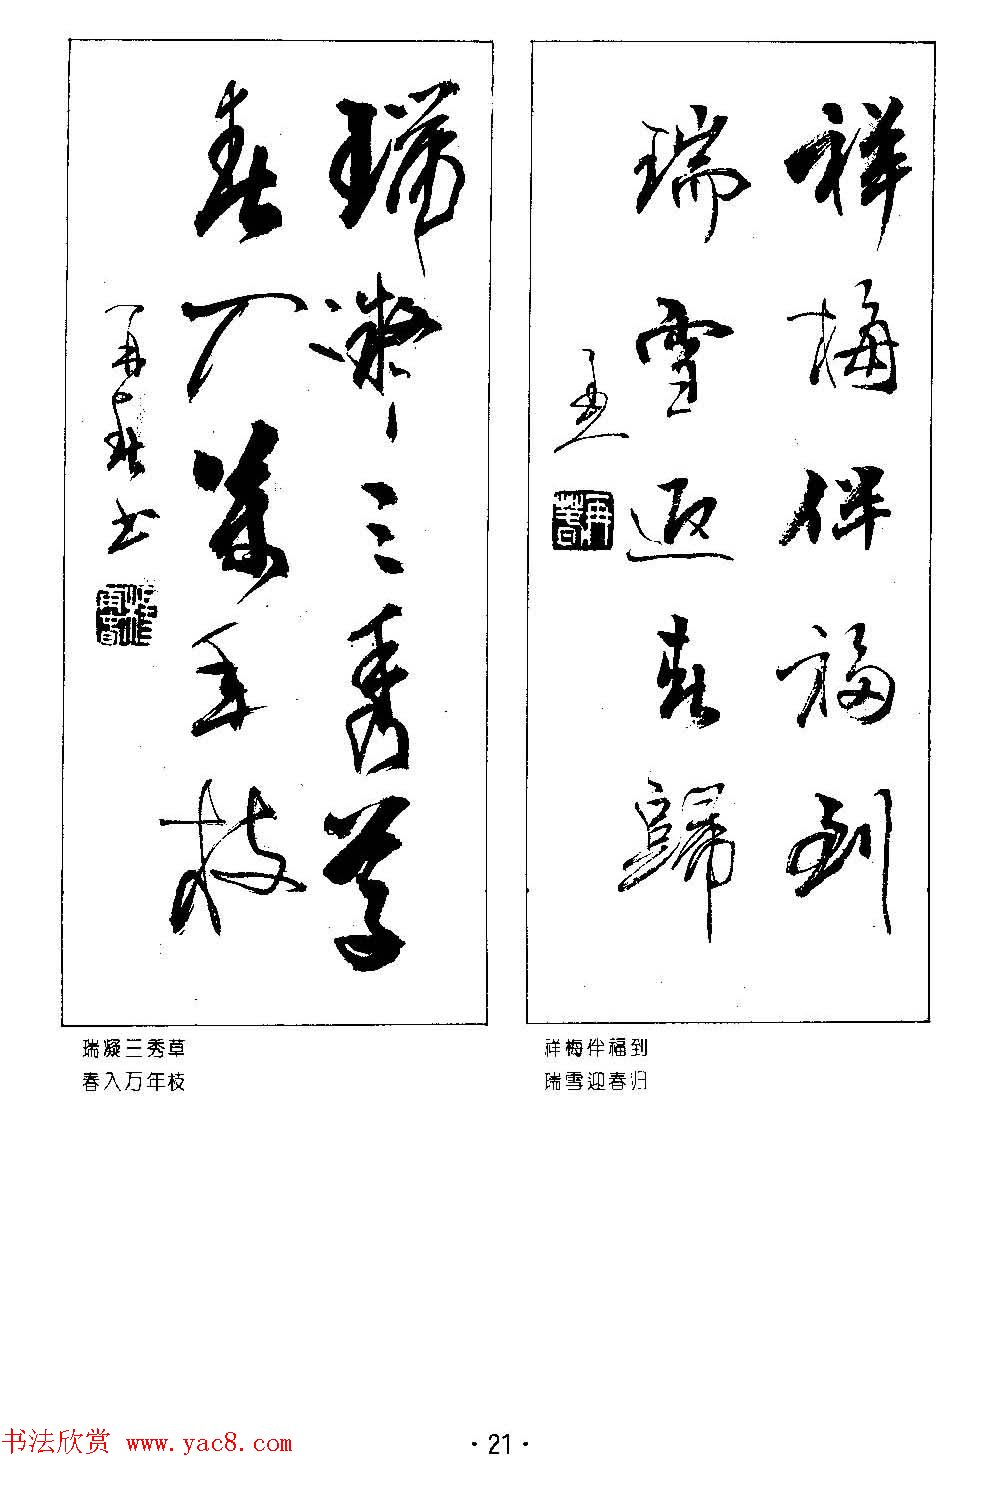 祥梅伴福到
瑞雪迎春归
瑞凝三秀草
春入萬年枝
再春书
祥梅伴福到
瑞雪迎春归
瑞凝三秀草
春入万年枝
书法欣赏 www.yac8.com
·21·